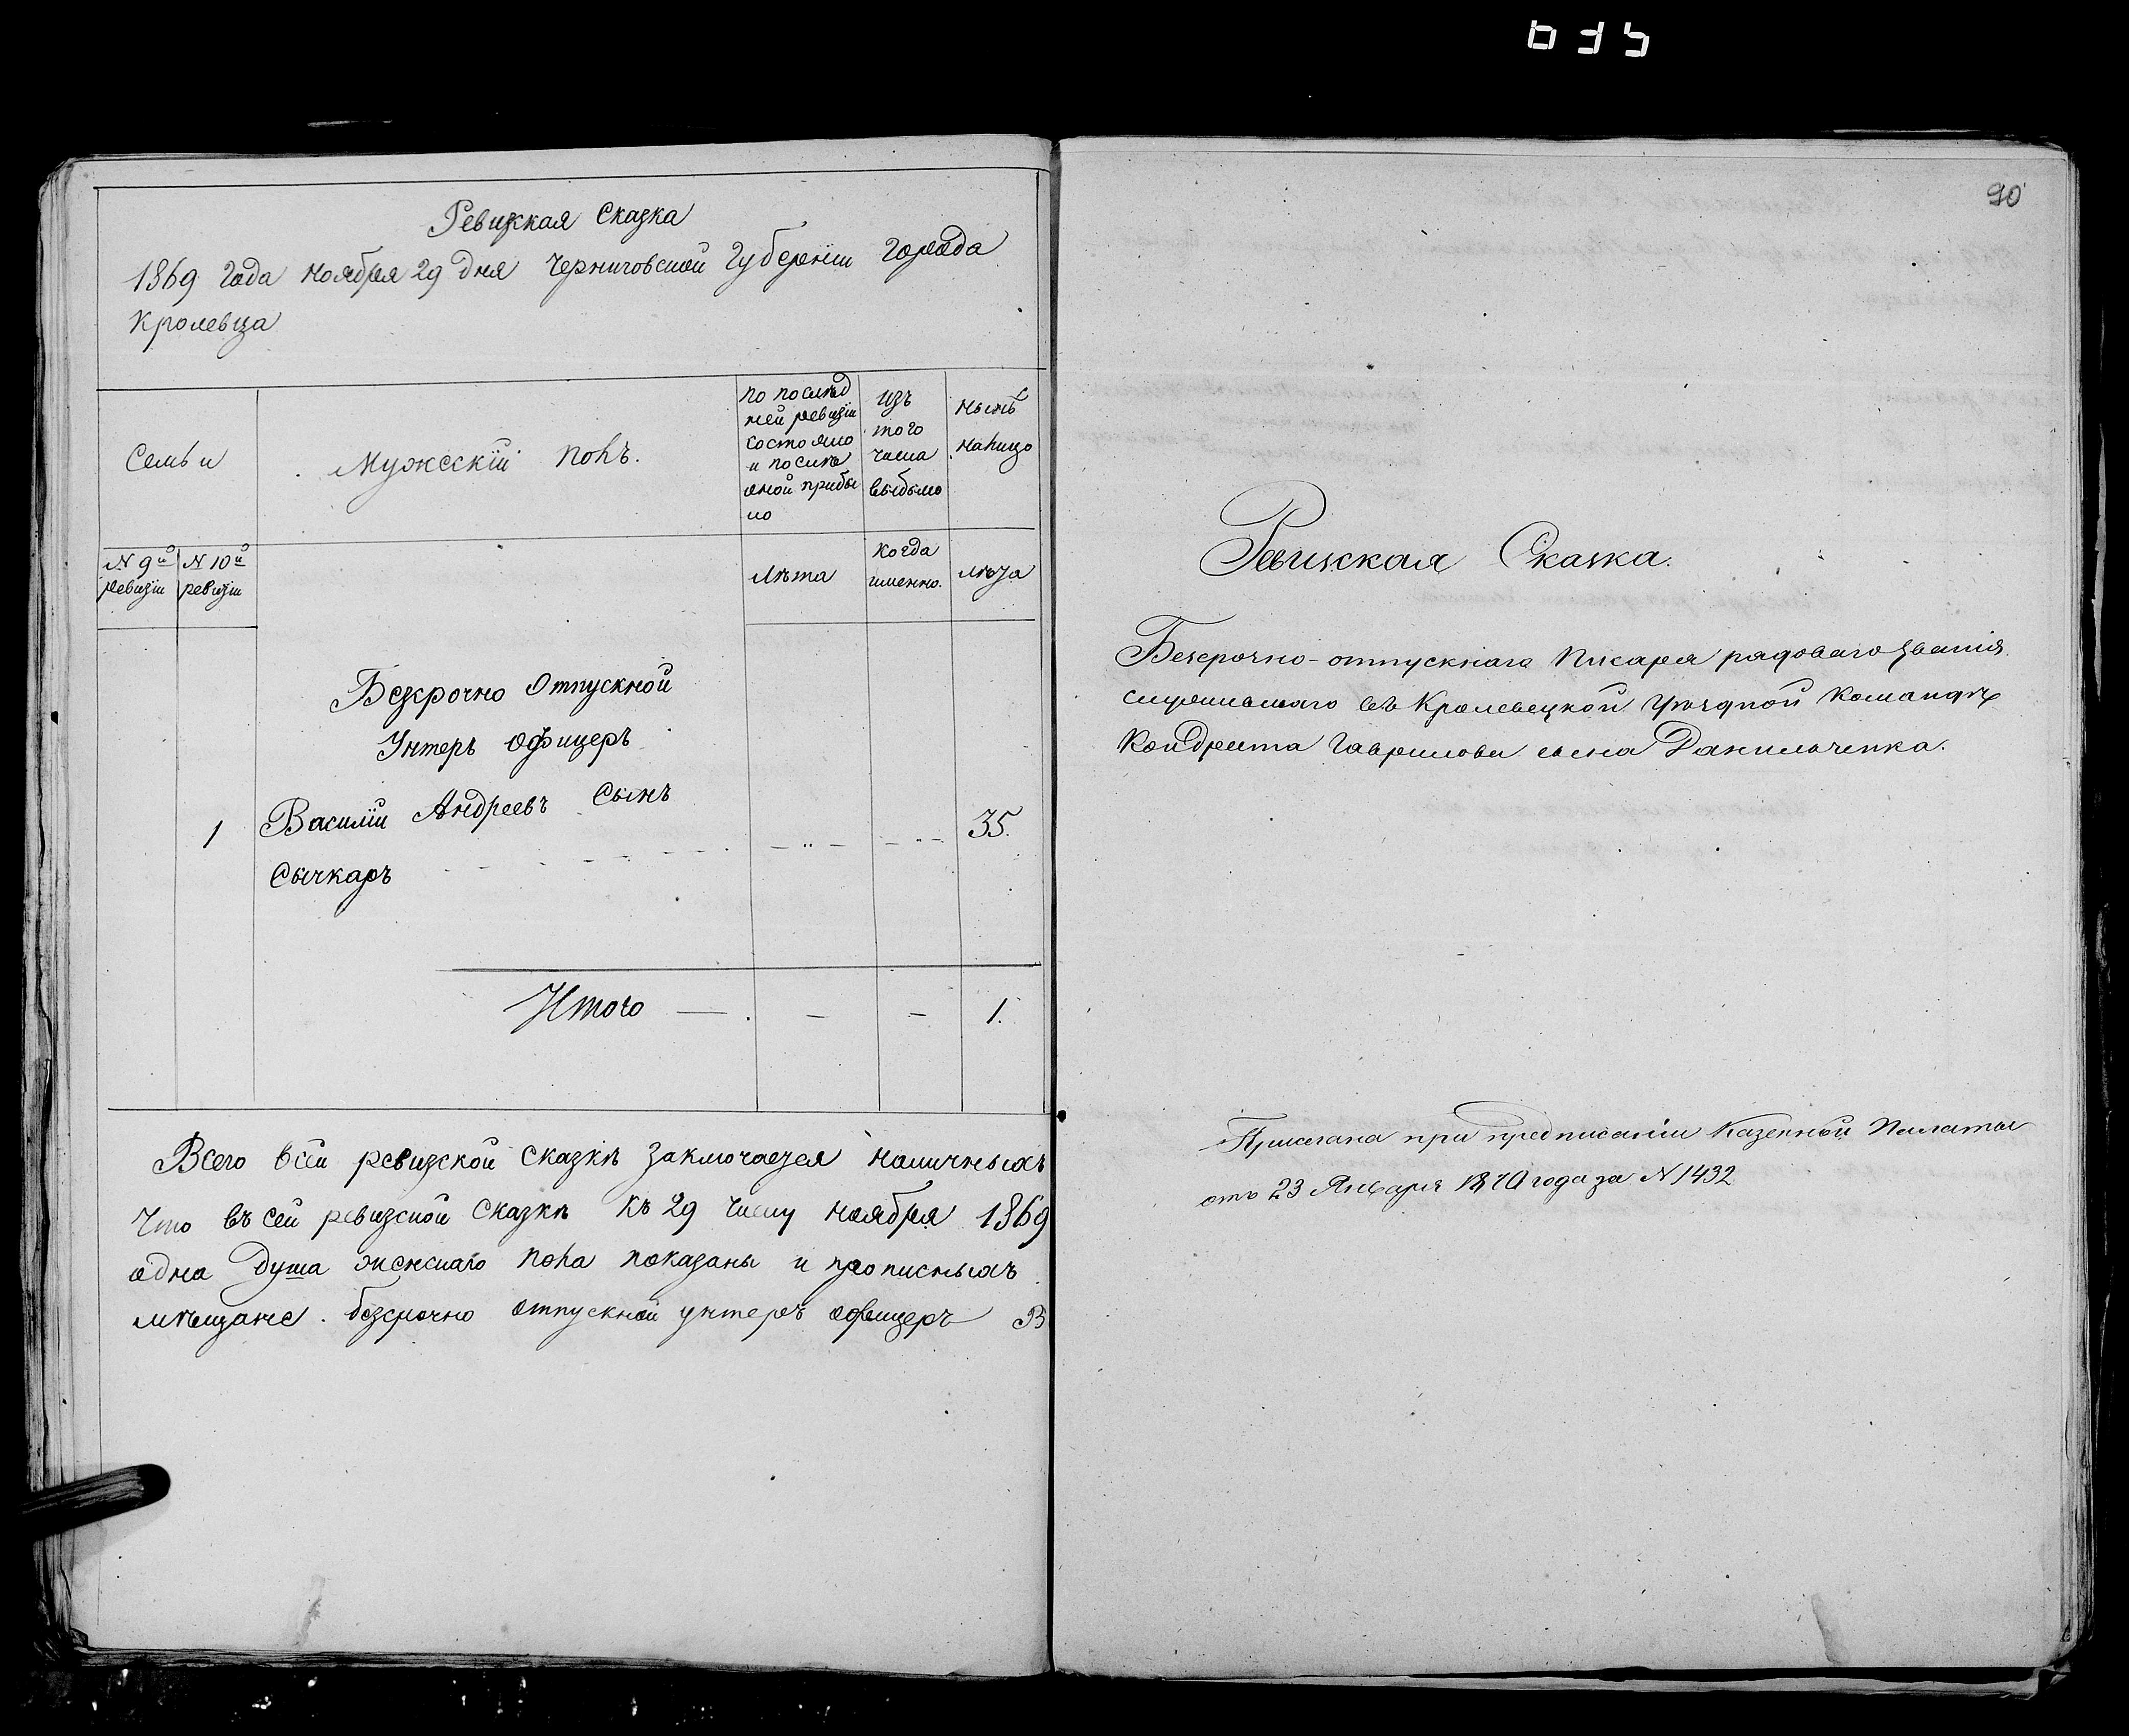 Ревизкая Сказка
1869 Года Ноября 29 дня Черниговской Губернiи Города
Кролевца
Семьи
Мужескiй полъ.
по послѣд
ней ревизiи
состояло
и после
оной прибы
ло
изъ
того
числа
выбыло
нынѣ
на лицо
N 9й
ревизiи
N 10й
ревизiи
лѣта
когда
именно.
лѣта
Безкрочно Отпускной
Унтеръ Офицеръ
1 Василiй Андреевъ Сынъ 35.
Сычкаръ
Итого — — — 1.
Всего всѣй ревизской Сказкѣ заключается наличныхъ
Что въ сей ревизской Сказкѣ къ 29 числу Ноября 1869
одна душа женскаго пола показаны и прописныхъ
мѣщане. безсрочно отпускной унтеръ офицеръ В
90
Ревизская Сказка.
Безсрочно-отпускнаго Писаря рядоваго званiя
служившаго въ Кролевецкой Уѣздной Командѣ
Кондрата Гаврилова сына Данильченка.
Прислана при предписанiи Казенной Палаты
отъ 23 Января 1870 года за N 1432